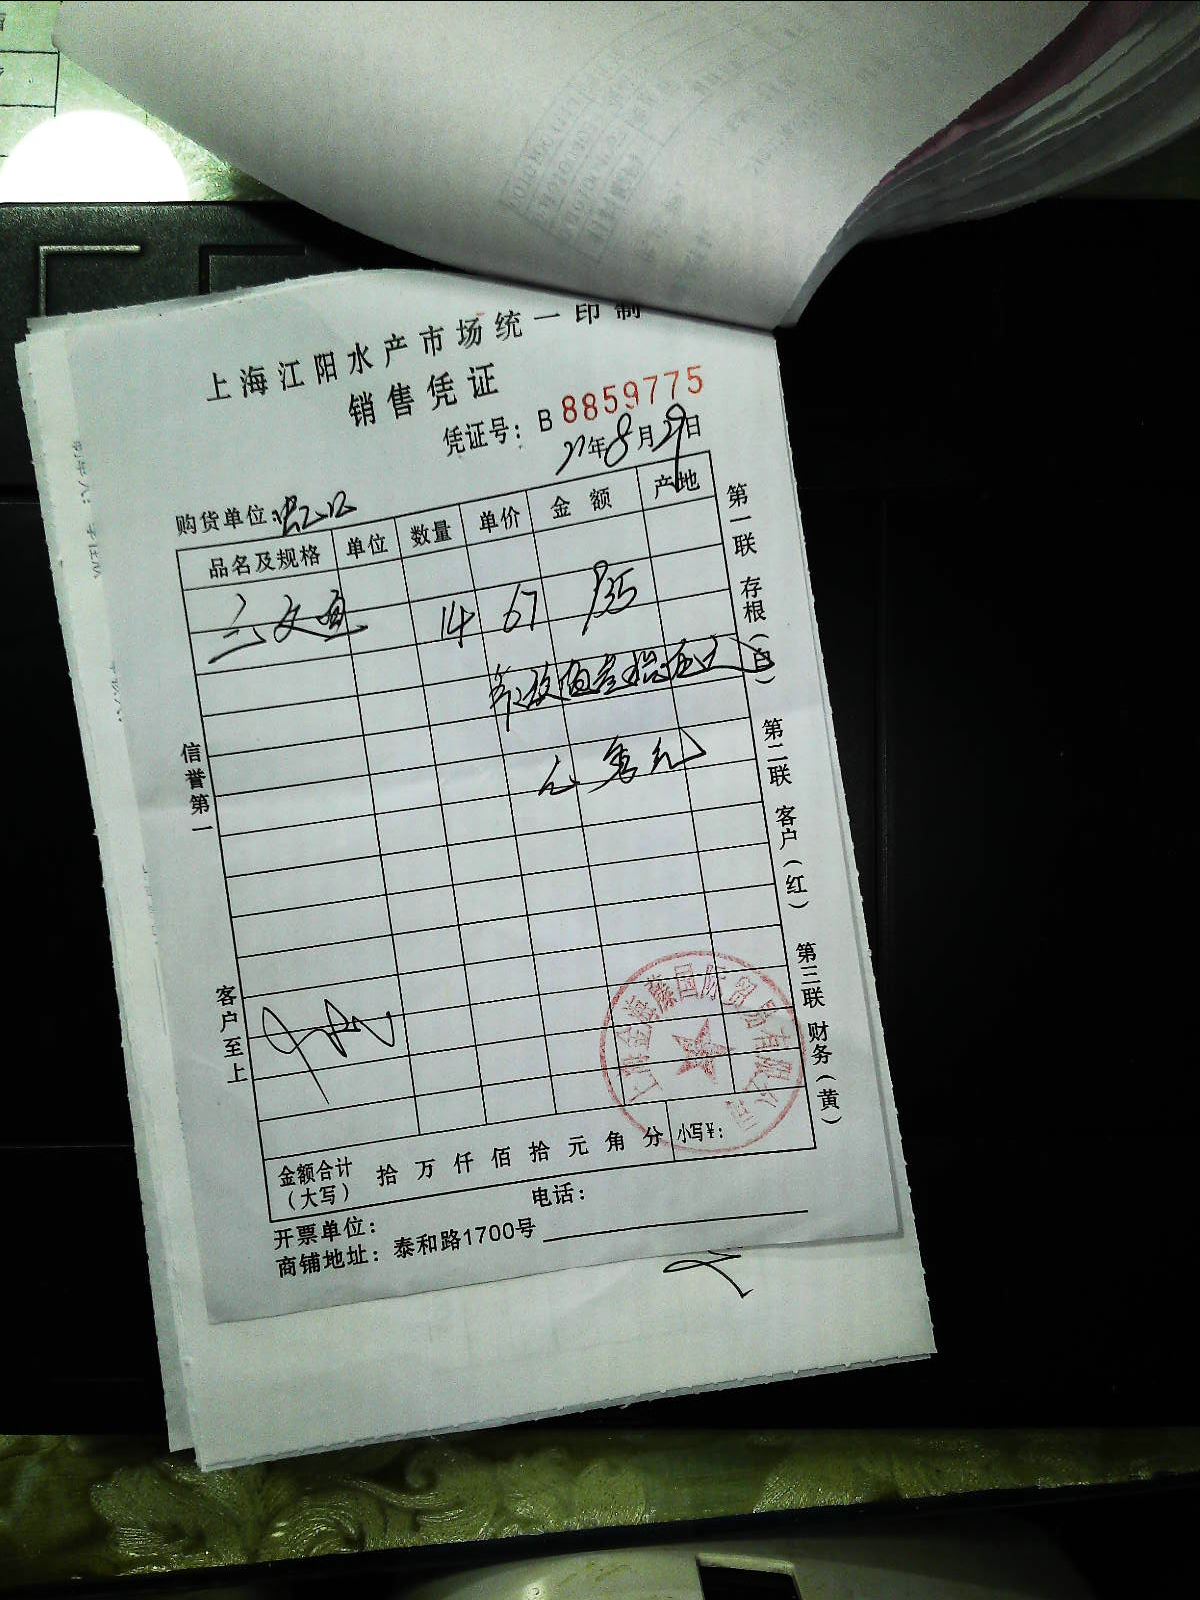 上海江阳水产市场统一印制
销售凭证
凭证号：B 8859775
21年8月29日
购货单位：
品名及规格 单位 数量 单价 金额 产地
三文鱼 14 67 935
玖佰叁拾伍元
信誉第一
客户至上
第一联 存根（白） 第二联 客户（红） 第三联 财务（黄）
上海金海藤国际贸易有限公司
金额合计（大写） 拾 万 仟 佰 拾 元 角 分 小写¥：
开票单位： 电话：
商铺地址：泰和路1700号